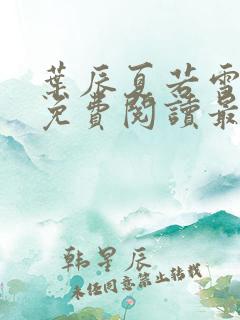 葉辰夏若雪
免費閱讀最
韩星辰
未经同意禁止转载